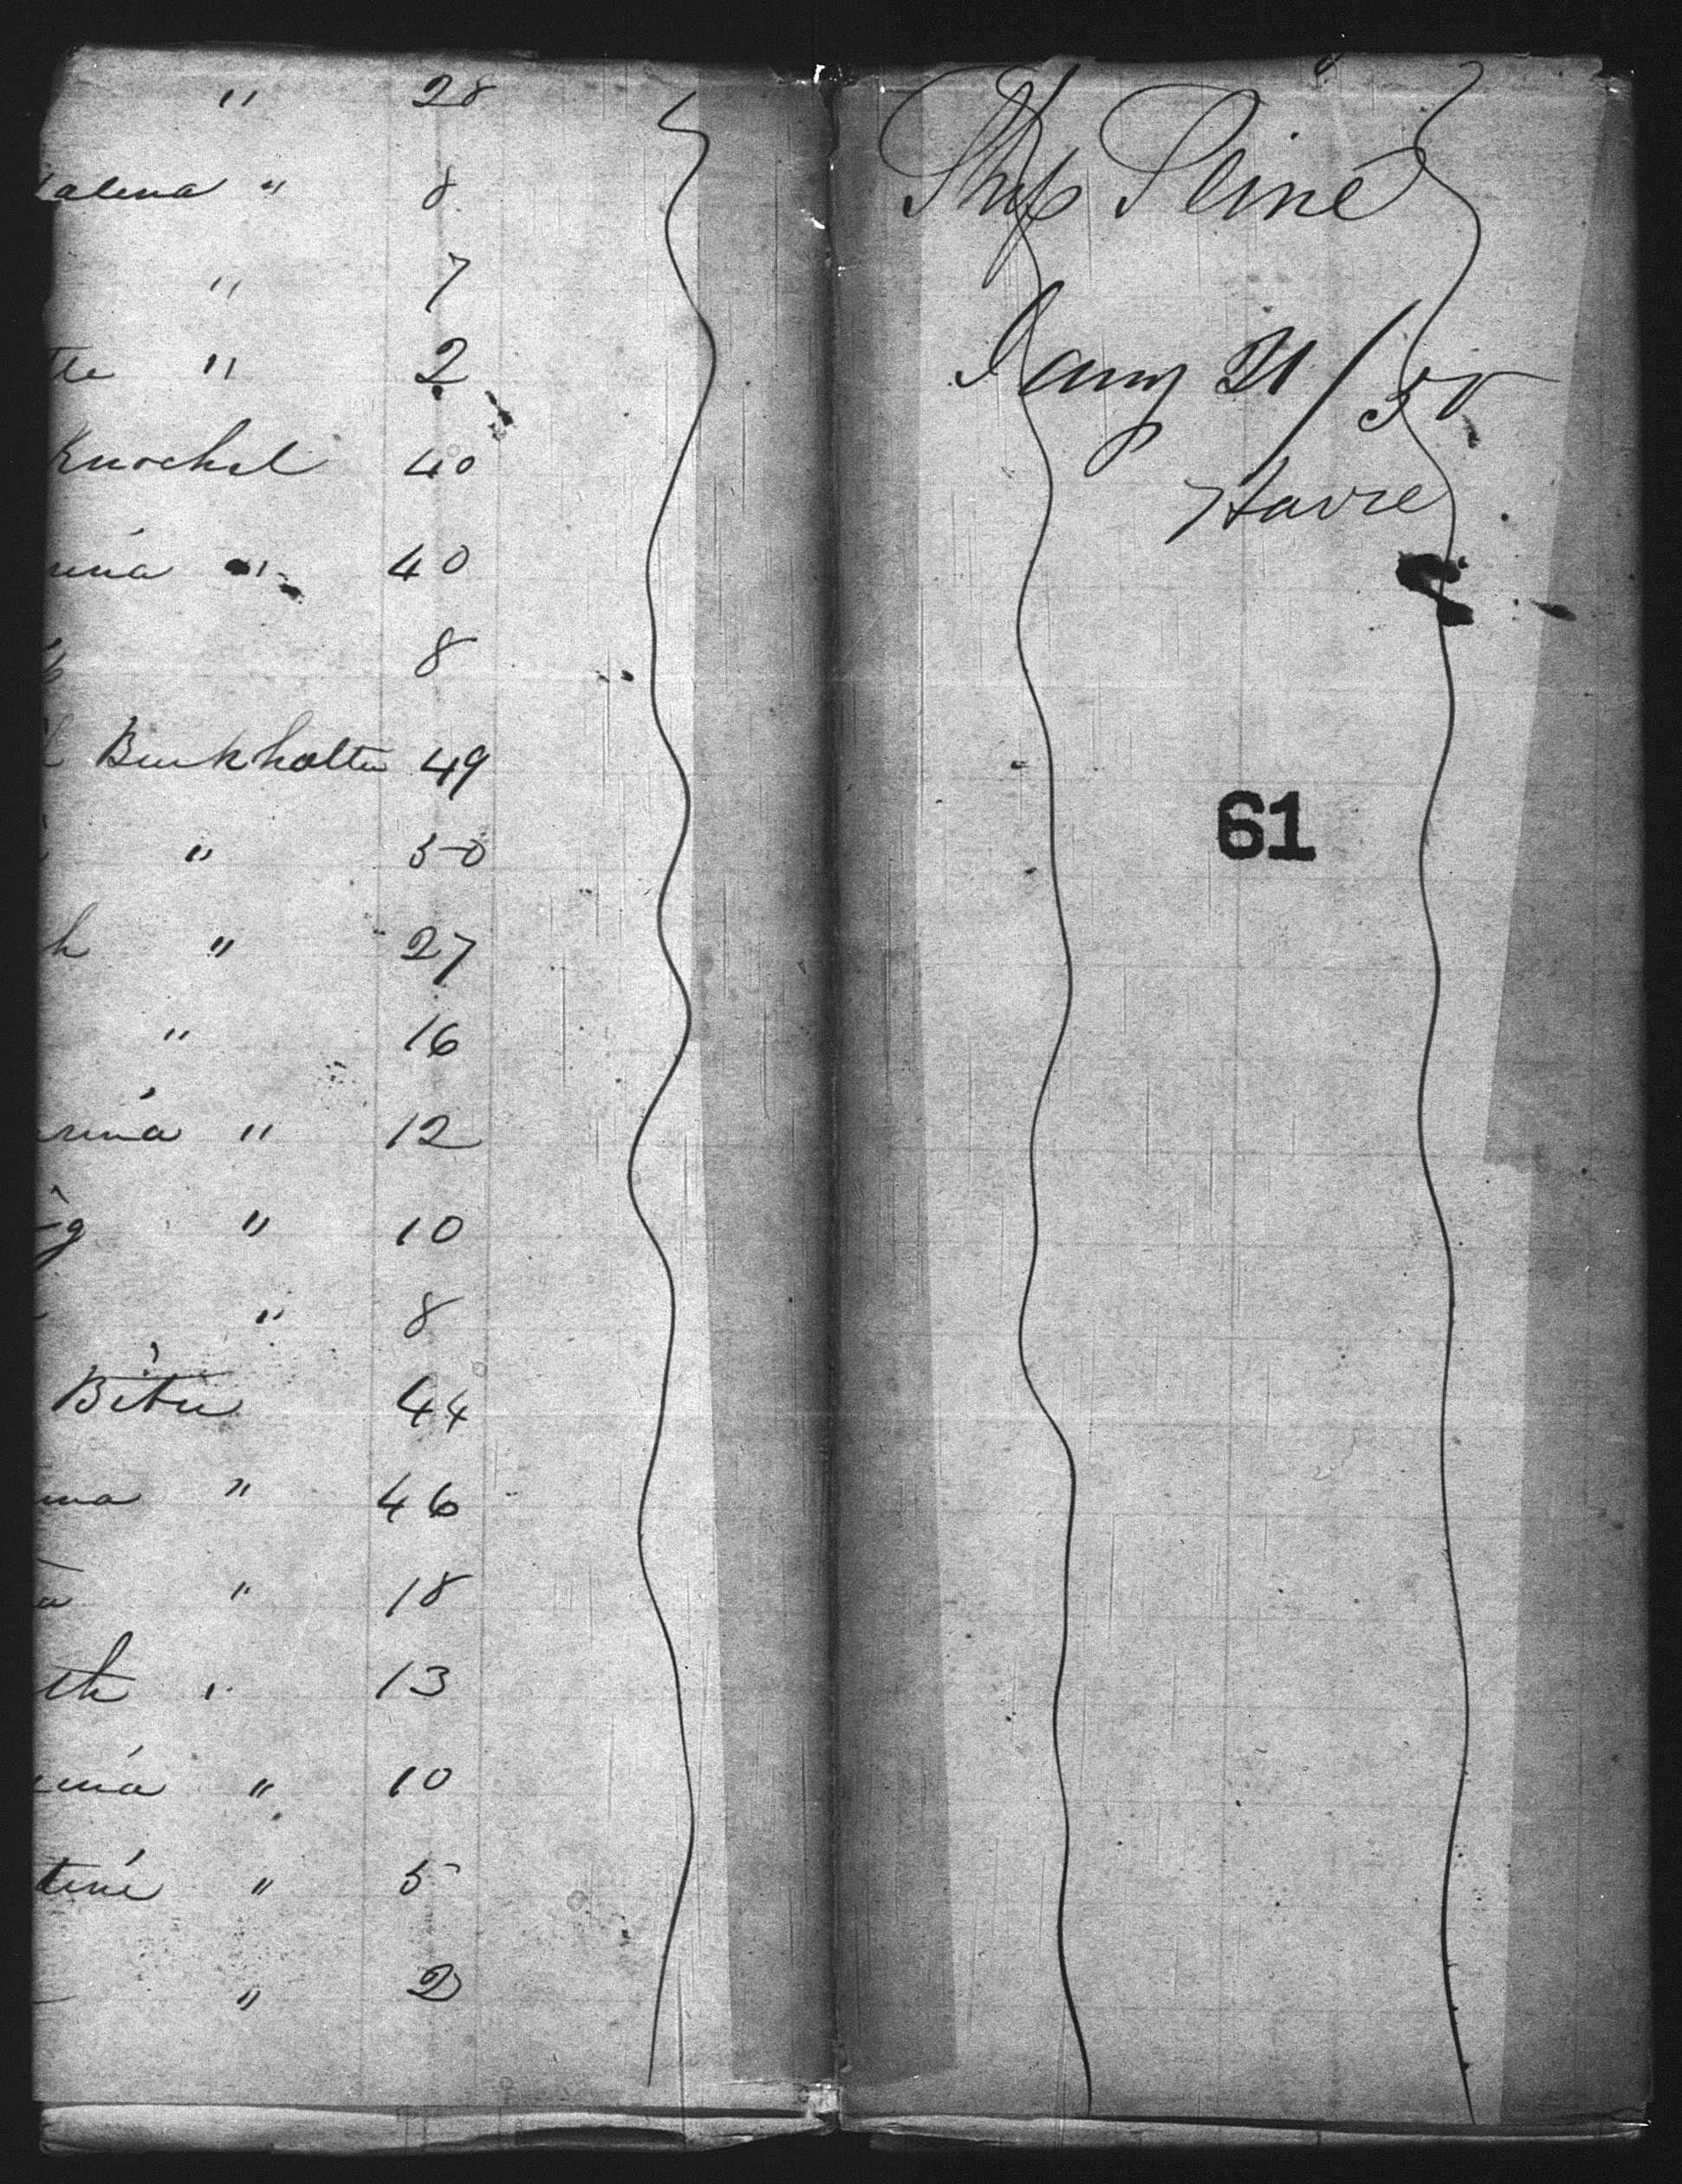 " 28
alena " 8
" 7
tte " 2
Knochel 40
" 40
8
Burkholter 49
" 50
h " 27
" 16
rina " 12
g " 10
" 8
Biter 44
" 46
a " 18
th " 13
" 10
tine " 5
" 2
Ship Seine
Jany 21/55
Havre
61